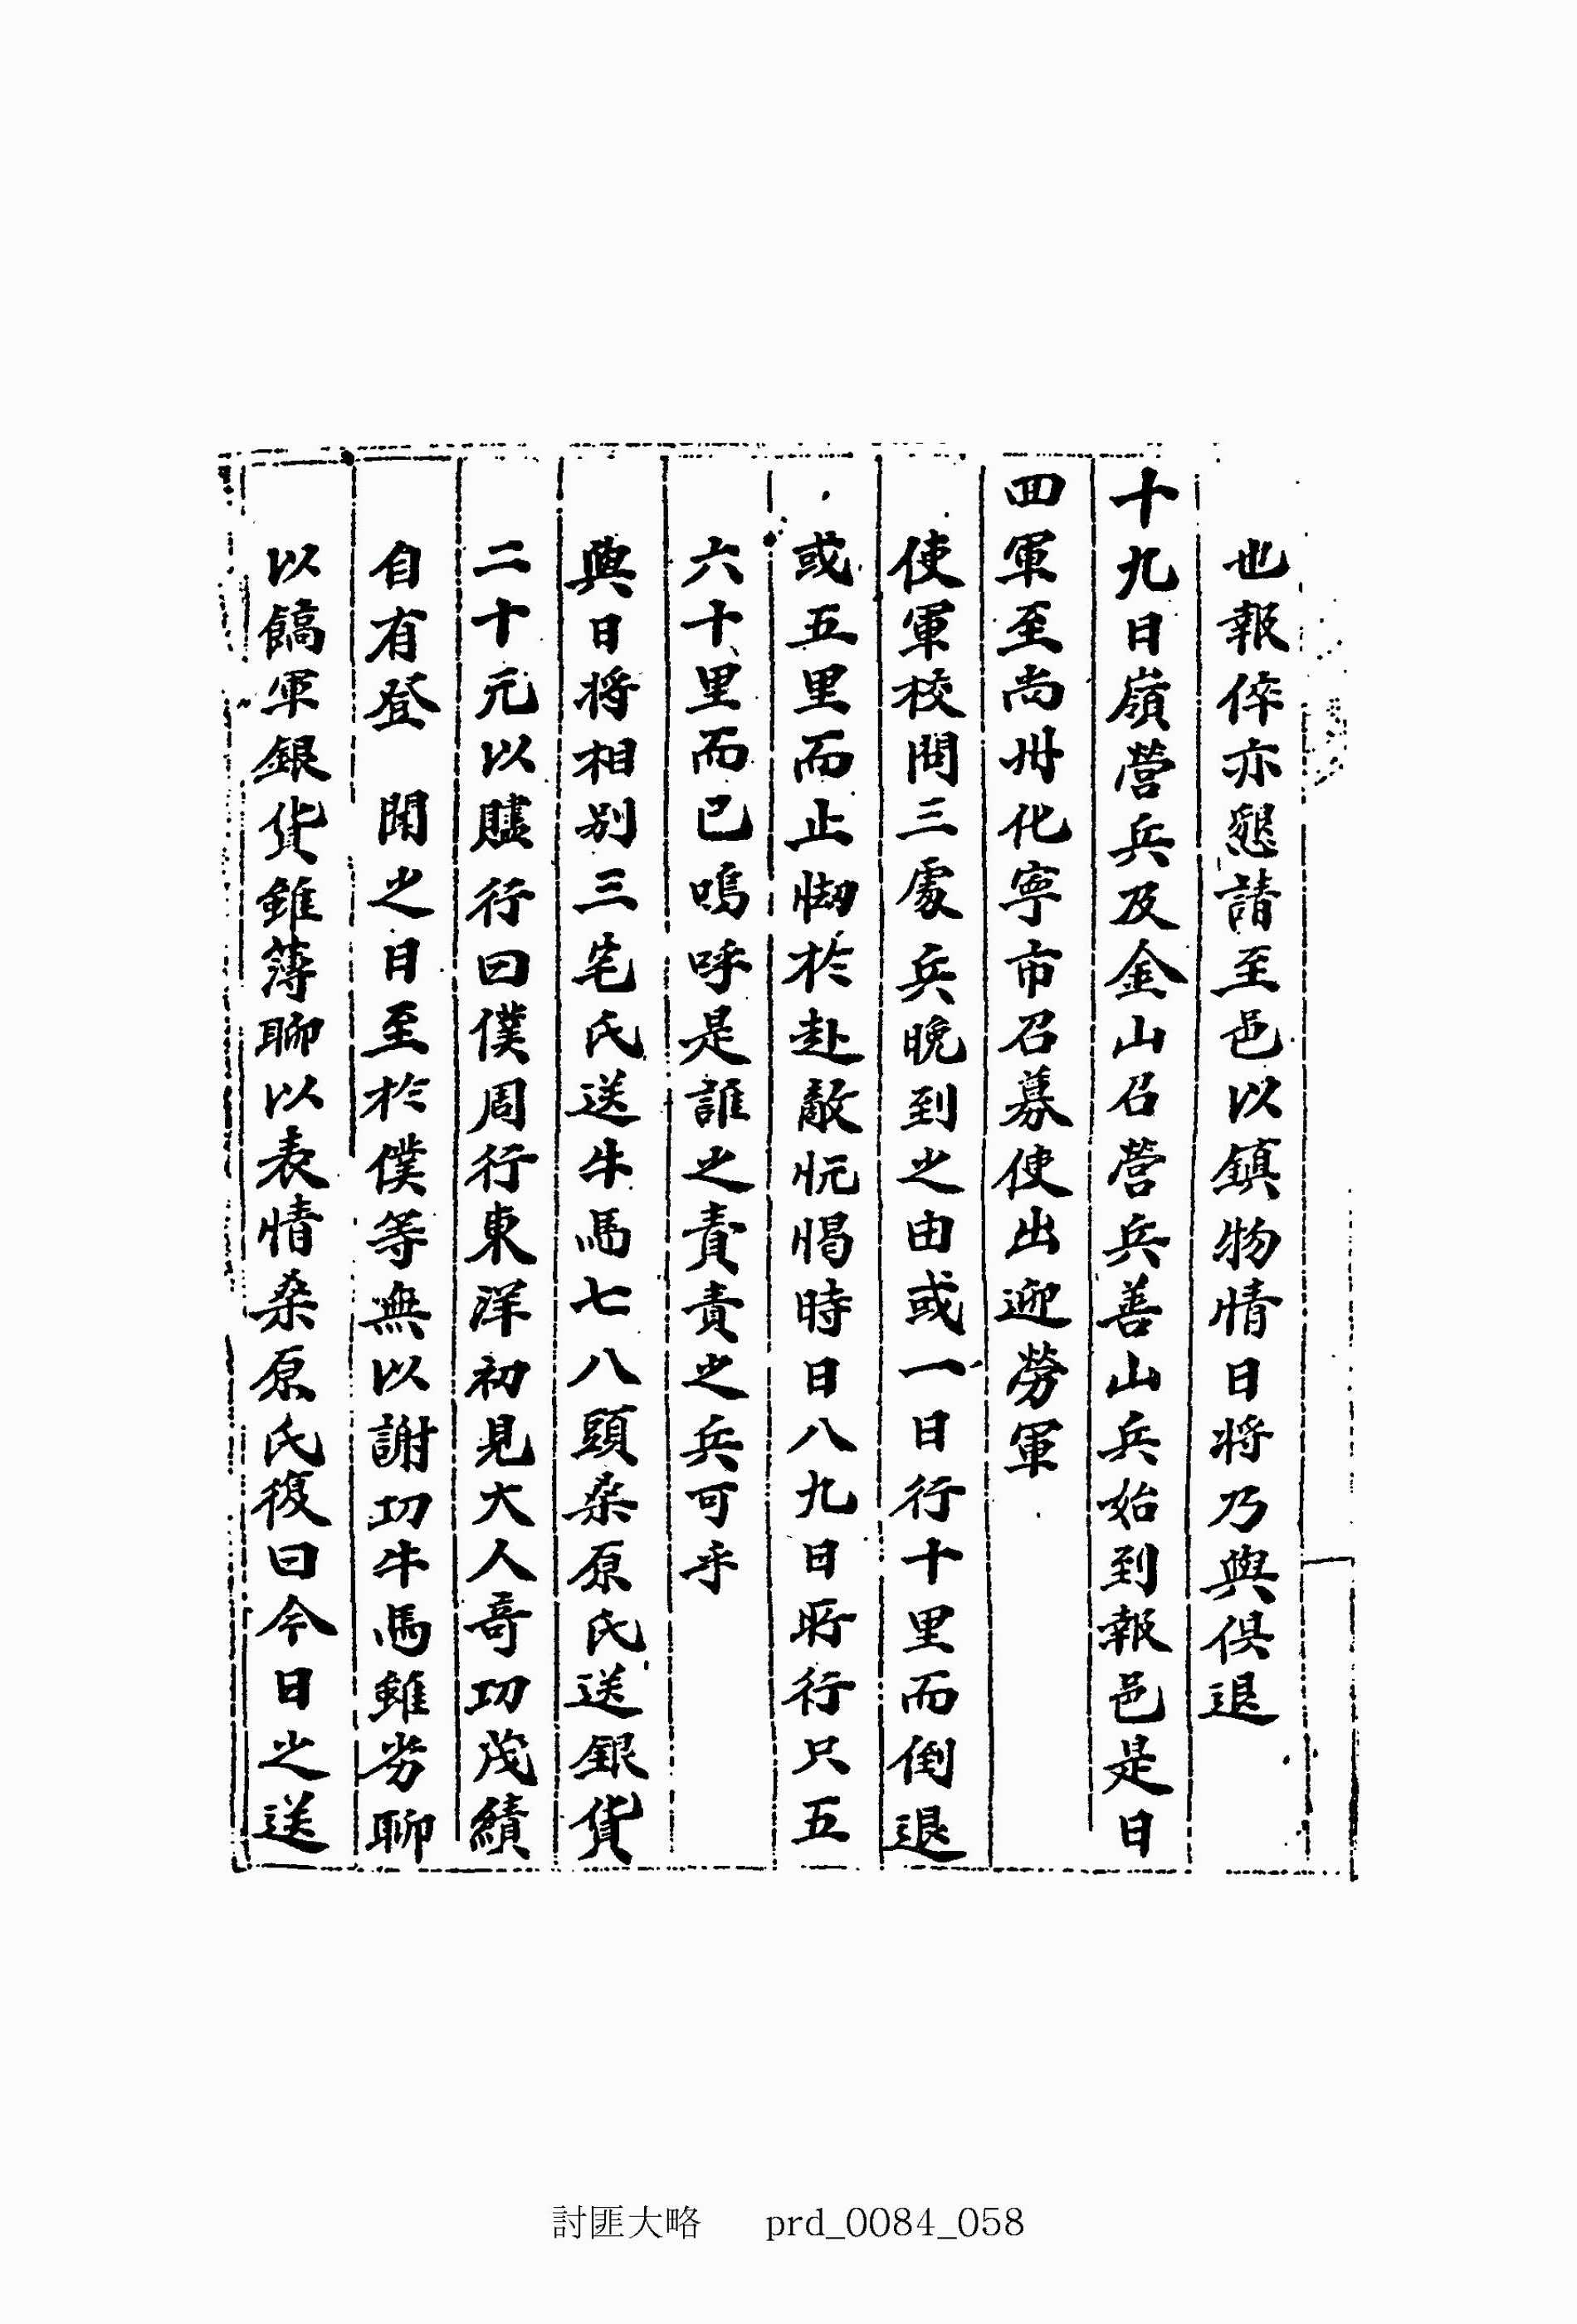 也報倅亦懇請至邑以鎮物情日將乃與俱退
十九日嶺營兵及金山召營兵善山兵始到報邑是日
四軍至尚州化寧市召募使出迎勞軍
使軍校問三處兵晚到之由或一日行十里而倒退
或五里而止㤼於赴敵忨愒時日八九日所行只五
六十里而已嗚呼是誰之責責之兵可乎
與日將相別三宅氏送牛馬七八頭桑原氏送銀貨
二十元以贐行曰僕周行東洋初見大人奇功茂績
自有登 聞之日至於僕等無以謝功牛馬雖劣聊
以饎軍銀貨雖薄聊以表情桑原氏復曰今日之送
討匪大略 prd_0084_058